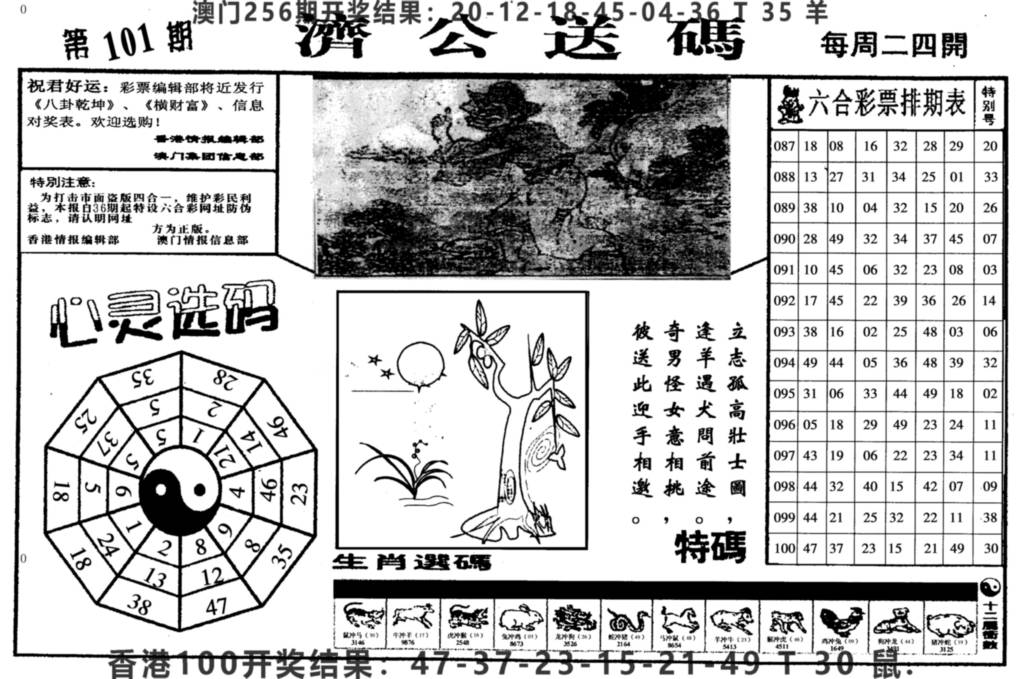 澳门256期开奖结果：20-12-18-45-04-36 T 35 羊
第101期
濟公送碼
每周二四開
祝君好运：彩票编辑部将近发行
《八卦乾坤》、《横财富》、信息
对奖表。欢迎选购！
香港情报编辑部
澳门集团信息部
特别注意：
为打击市面盗版四合一，维护彩民利
益，本报自36期起特设六合彩网址防伪
标志，请认明网址
方为正版。
香港情报编辑部 澳门情报信息部
六合彩票排期表 特别号
087 18 08 16 32 28 29 20
088 13 27 31 34 25 01 33
089 38 10 04 32 15 20 26
090 28 49 32 34 37 45 07
091 10 45 06 32 23 08 03
092 17 45 22 39 36 26 14
093 38 16 02 25 48 03 06
094 49 44 05 36 48 39 32
095 31 06 33 44 49 18 02
096 05 18 29 49 23 24 11
097 43 19 06 22 23 34 11
098 44 32 40 15 42 07 09
099 44 21 25 32 22 11 38
100 47 37 23 15 21 49 30
心灵选码
35 28 46 23 35 47 38 18 18 25
5 2 14 46 8 12 13 24 5 37
5 1 21 4 9 8 2 1 6 5
立志孤高壯士圖，
逢羊遇犬問前途。
奇男怪女意相挑，
彼送此迎手相邀。
特碼
生肖選碼
鼠冲马
3146
牛冲羊
9876
虎冲猴
2548
兔冲鸡
8673
龙冲狗
3526
蛇冲猪
2164
马冲鼠
8654
羊冲牛
5413
猴冲虎
4511
鸡冲兔
1649
狗冲龙
猪冲蛇
3125
香港100开奖结果：47-37-23-15-21-49 T 30 鼠.